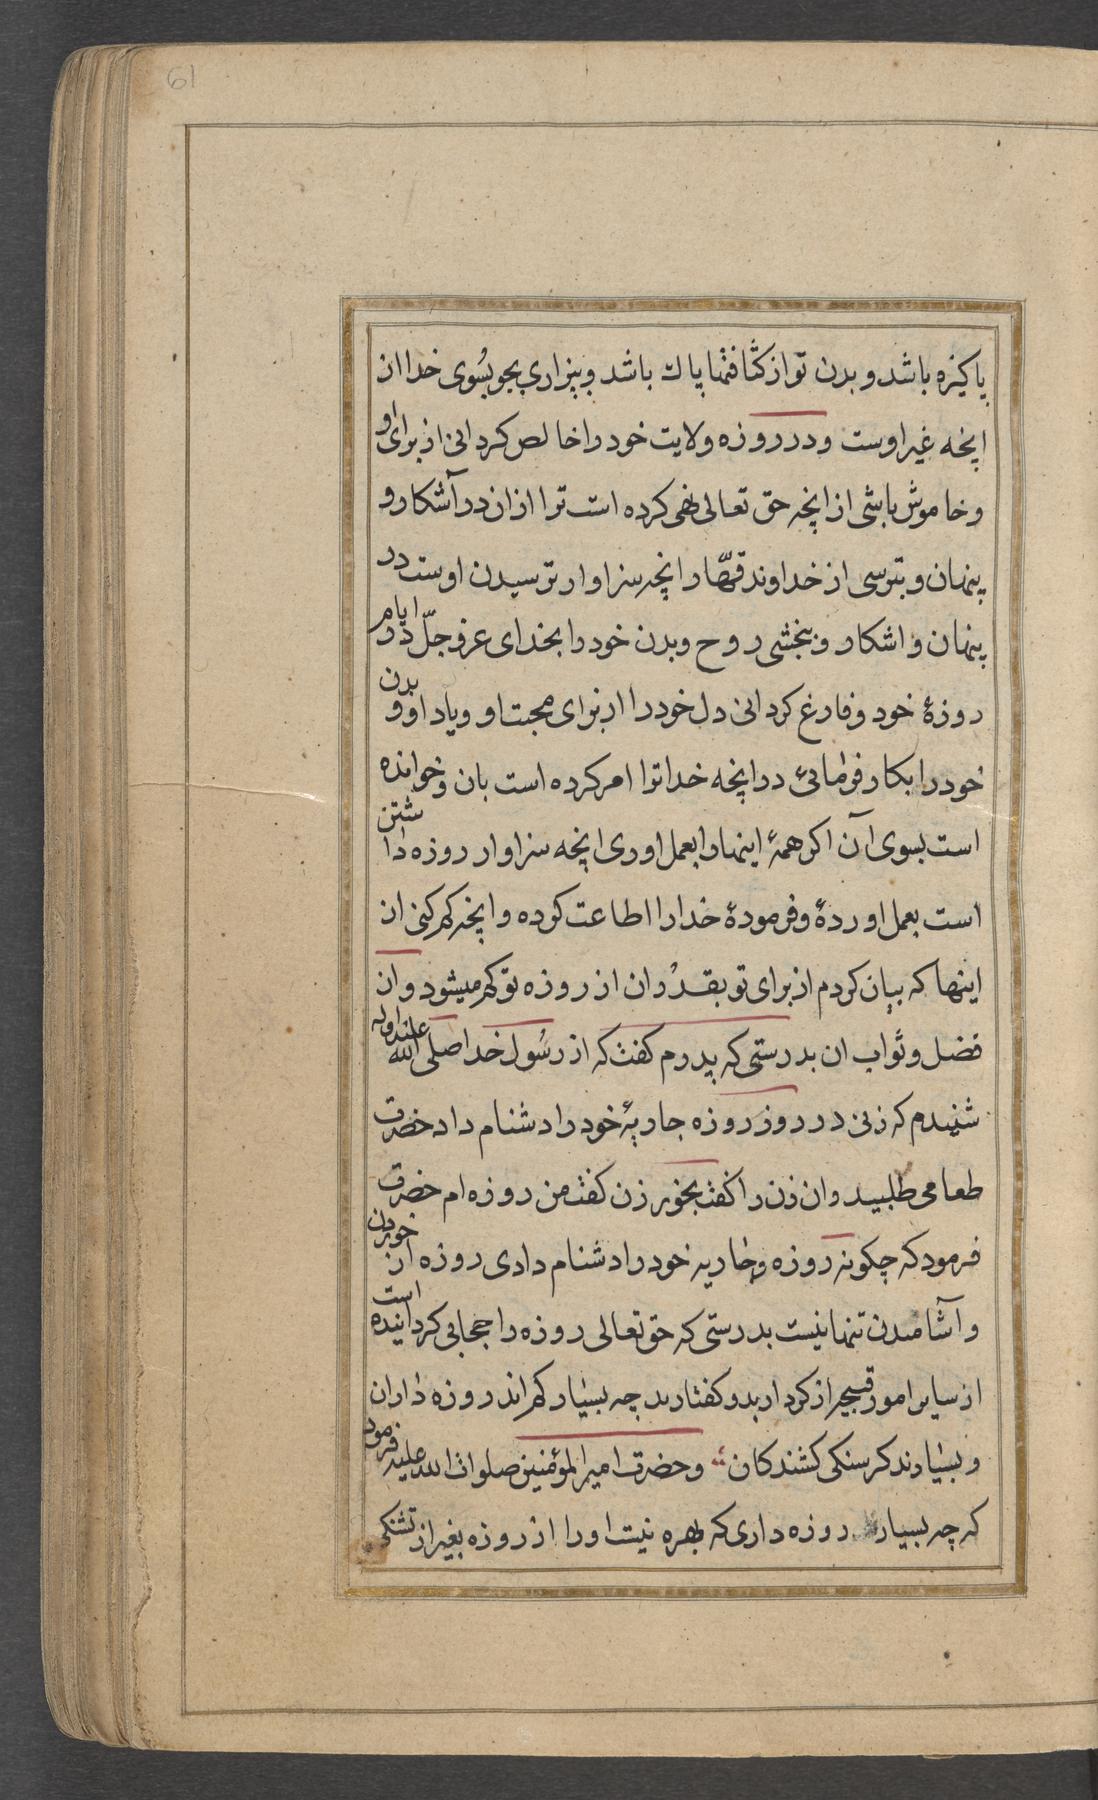 61
پاکیزه باشد و بدن تو از کثافتها پاك باشد و بیزاری بجویی بسُوی خدا از
انچه غیر اوست و در روزه ولایت خود را خالص کردانی از برای او
و خاموش باشی از انچه حق تعالی نهی کرده است ترا از ان در آشکار و
پنهان و بترسی از خداوند قهّار انچه سزاوار ترسیدن اوست در
پنهان و اشکار و ببخشی روح و بدن خود را بخدای عز و جلّ در ایام
روزهٔ خود و فارغ کردانی دل خود را از برای محبت او و یاد او و بدن
خود را بکار فرمائی در انچه خدا ترا امر کرده است بان و خوانده
است بسوی آن اکر همهٔ اینها را بعمل اوری انچه سزاوار روزه داشتن
است بعمل اوردهٔ و فرمودهٔ خدا را اطاعت کرده و انچه کم کنی از
اینها که بیان کردم از برای تو بقدر ان از روزه تو کم میشود و از
فضل و ثواب ان بدرستی که پدرم کفت که از رسُول خدا صلی الله علیه و اله
شنیدم که زنی در روز روزه جاریهٔ خود را دشنام داد حضرت
طعامی طلبید و ان زن را کفت بخور زن کفت من روزه ام حضرت
فرمود که چکونه روزه و جاریه خود را دشنام دادی روزه از خوردن
و آشامیدن تنها نیست بدرستی که حق تعالی روزه را حجابی کردانیده است
از سایر امور قبیح از کردار بد و کفتار بد چه بسیار کم اند روزه داران
و بسیارند کرسنکی کشندکان و حضرت امیر المؤمنین صلوات الله علیه فرمود
که چه بسیار روزه داری که بهره نیست او را از روزه بغیر از تشنکی